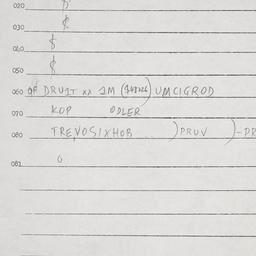 020
030
040
050
060 OF DRUIT xx IM () UMCIGROD
070 KOP ODLER
080 TREVOSIXHOB )PRUV )-PR
081 O